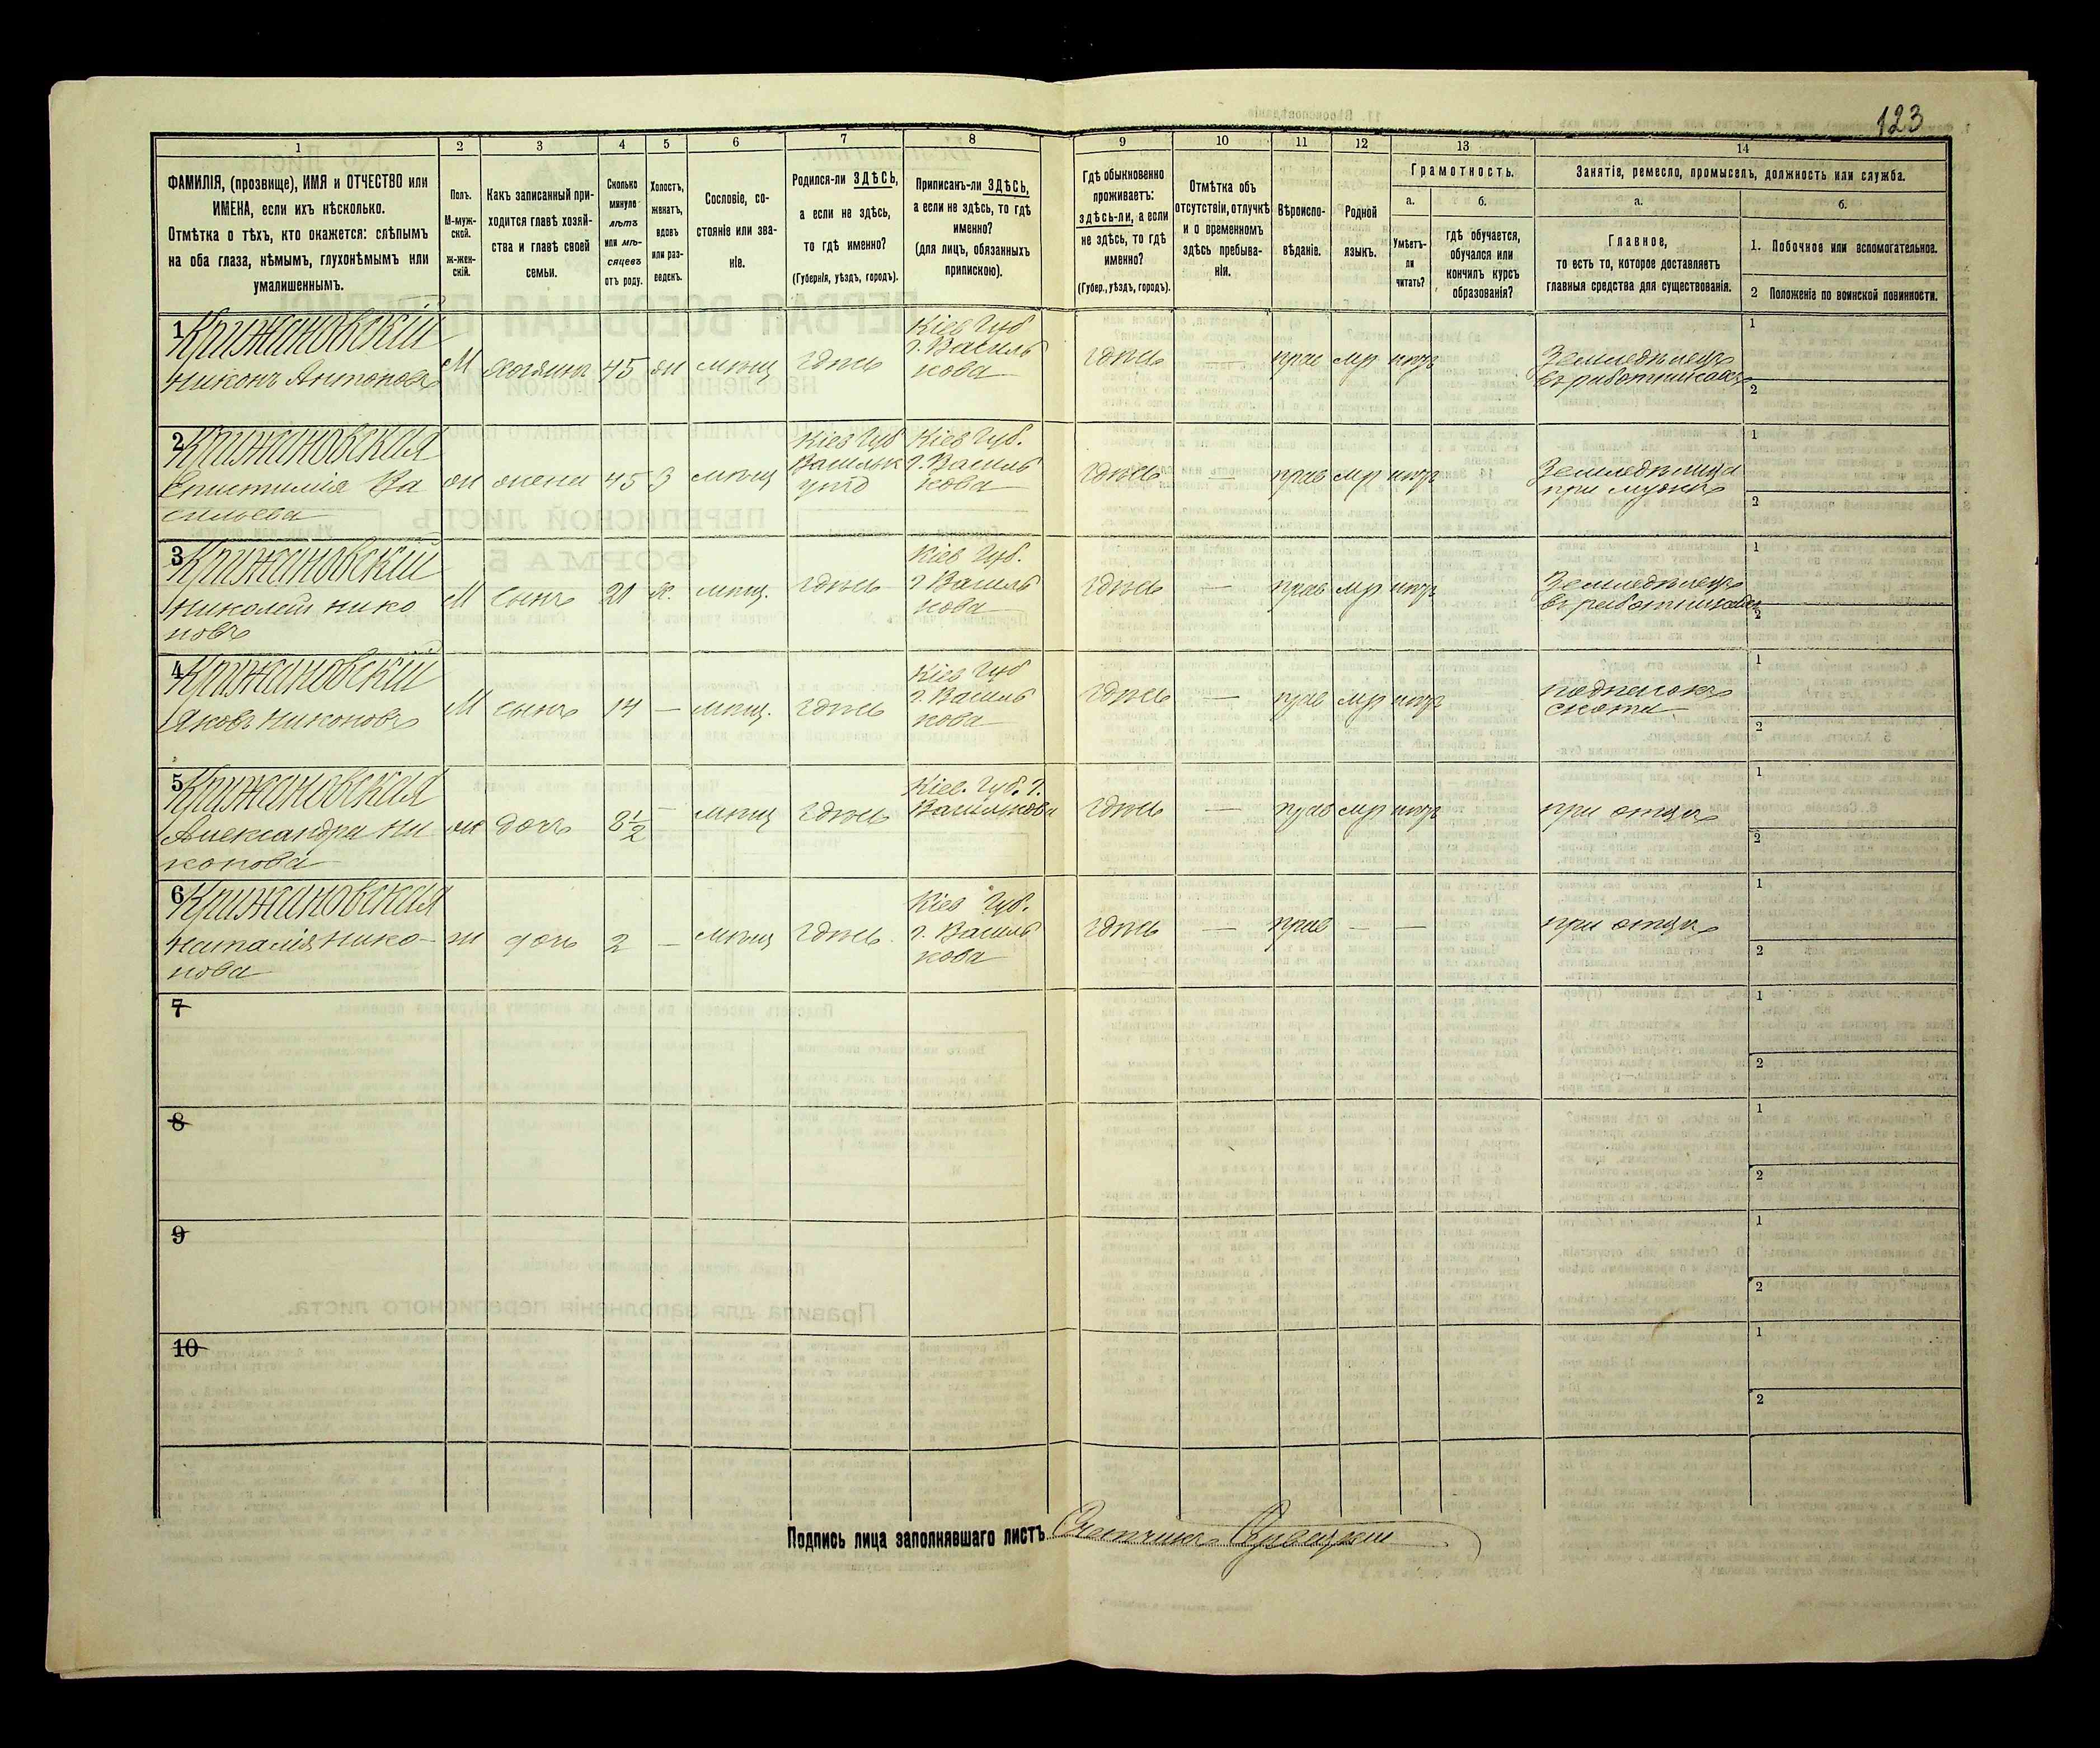 123
1
2
3
4
5
6
7
8
9
10
11
12
13
14
ФАМИЛІЯ, (прозвище), ИМЯ и ОТЧЕСТВО или
ИМЕНА, если ихъ нѣсколько.
Отмѣтка о тѣхъ, кто окажется: слѣпымъ
на оба глаза, нѣмымъ, глухонѣмымъ или
умалишеннымъ.
Полъ.
М-муж-
ской.
ж-жен-
скій.
Какъ записанный при-
ходится главѣ хозяй-
ства и главѣ своей
семьи.
Сколько
минуло
лѣтъ
или мѣ-
сяцевъ
отъ роду.
Холостъ,
женатъ,
вдовъ
или раз-
веденъ.
Сословіе, со-
стояніе или зва-
ніе.
Родился-ли ЗДѢСЬ,
а если не здѣсь,
то гдѣ именно?
(Губернія, уѣздъ, городъ).
Приписанъ-ли ЗДѢСЬ,
а если не здѣсь, то гдѣ
именно?
(для лицъ, обязанныхъ
припискою).
Гдѣ обыкновенно
проживаетъ:
здѣсь-ли, а если
не здѣсь, то гдѣ
именно?
(Губер., уѣздъ, городъ).
Отмѣтка объ
отсутствіи, отлучкѣ
и о временномъ
здѣсь пребыва-
ніи.
Вѣроиспо-
вѣданіе.
Родной
языкъ.
Грамотность.
а.
Умѣетъ-
ли
читать?
б.
гдѣ обучается,
обучался или
кончилъ курсъ
образованія?
Занятіе, ремесло, промыселъ, должность или служба.
а.
Главное,
то есть то, которое доставляетъ
главныя средства для существованія.
б.
1. Побочное или вспомогательное.
2 Положеніе по воинской повинности.
1 Крижановскій
Никонъ Антоновъ
М хозяинъ 45 жн мѣщ здѣсь
Кіев Губ
г. Василь
кова
здѣсь — прав мр нѣтъ
Земледѣлецъ
въ работникахъ
1
2
2 Крижановская
Епистимія Ва
сильева
ж жена 45 З мѣщ
Кіев Губ
Васильк
уѣзд
Кіев Губ.
г. Василь
кова
здѣсь — прав мр нѣтъ
Земледѣлица
при мужѣ
1
2
3 Крижановскій
Николай Нико
новъ
М сынъ 21 х. мѣщ. здѣсь
Кіев Губ.
г Василь
кова
здѣсь — прав мр нѣтъ
Земледѣлецъ
въ работникахъ
1
2
4 Крижановскій
Яковъ Никоновъ
М сынъ 14 — мѣщ. здѣсь
Кіев Губ
г. Василь
кова
здѣсь — прав мр нѣтъ
подпасокъ
скота
1
2
5 Крижановская
Александра Ни
конова
ж дочь 8½ — мѣщ здѣсь
Кіев. Губ. г.
Василькова
здѣсь — прав мр нѣтъ
при отцѣ
1
2
6 Крижановская
Наталія Нико-
нова
ж дочь 2 — мѣщ здѣсь
Кіев Губ.
г. Василь
кова
здѣсь — прав — —
при отцѣ
1
2
7
1
2
8
1
2
9
1
2
10
1
2
Подпись лица заполнявшаго листъ Счетчикъ